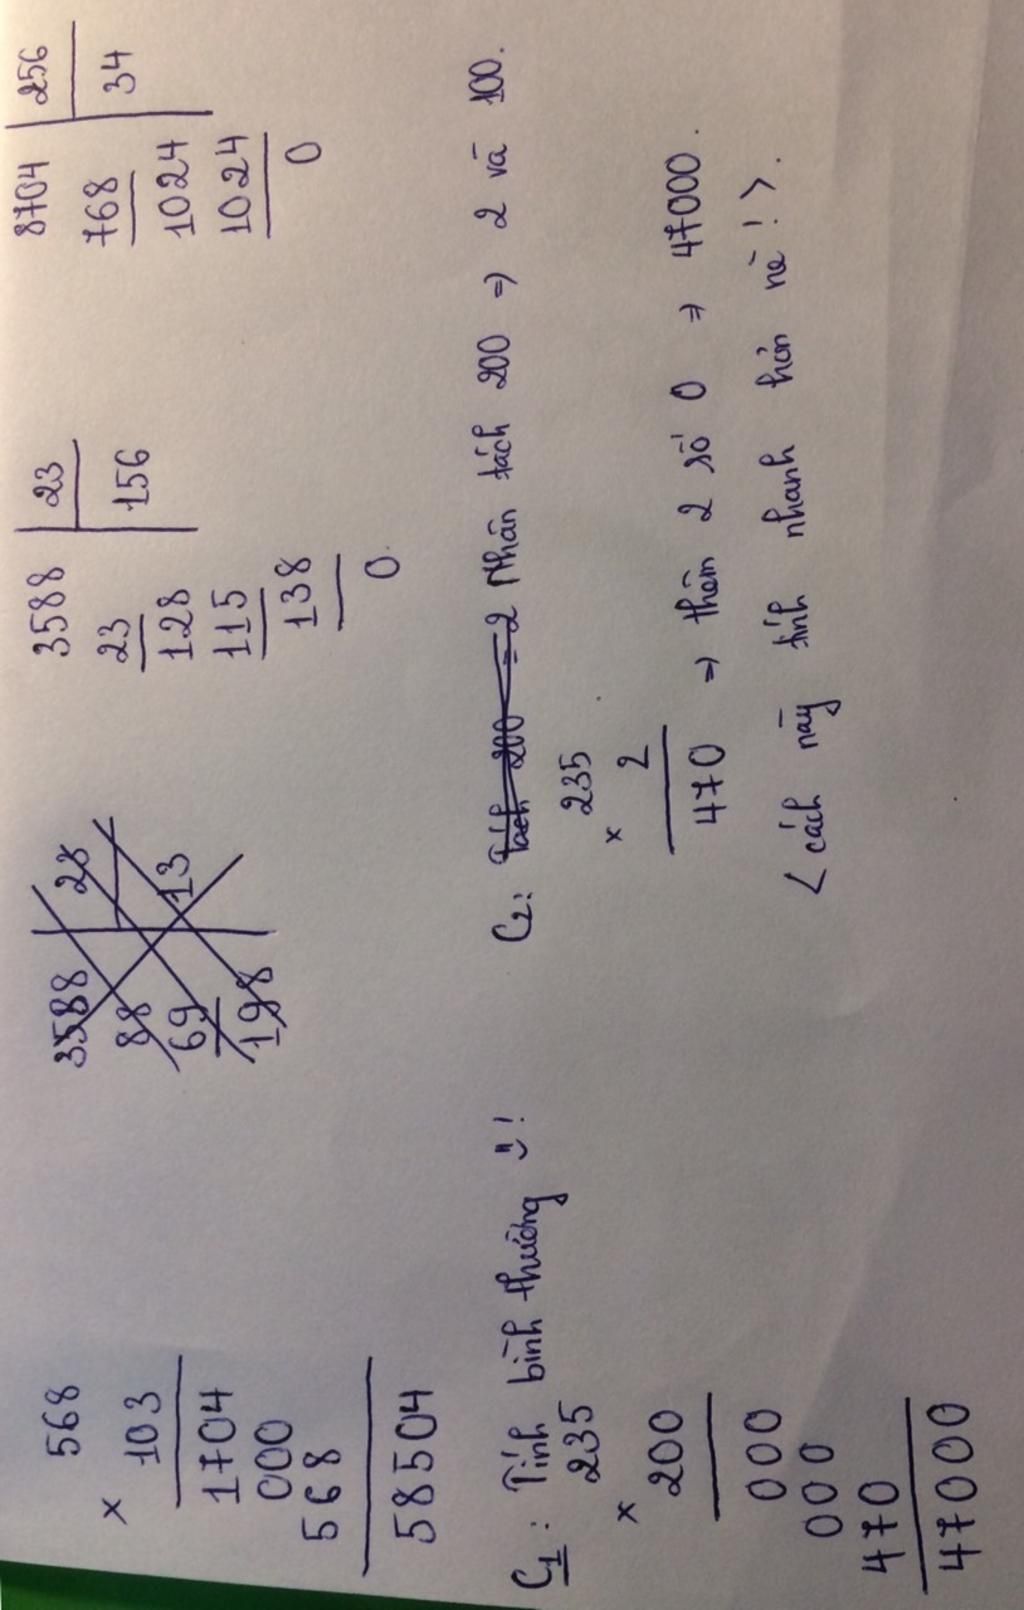 568
× 103
1704
000
568
58504
3588 23
88 13
69
198
3588 23
23 156
128
115
138
0
8704 256
768 34
1024
1024
0
C1: Tính bình thường !
235
× 200
000
000
470
47000
C2: Tách 200 = 2 Nhân tách 200 => 2 và 100.
235
× 2
470 => thêm 2 số 0 => 47000.
< cách này tính nhanh hơn nè ! >.